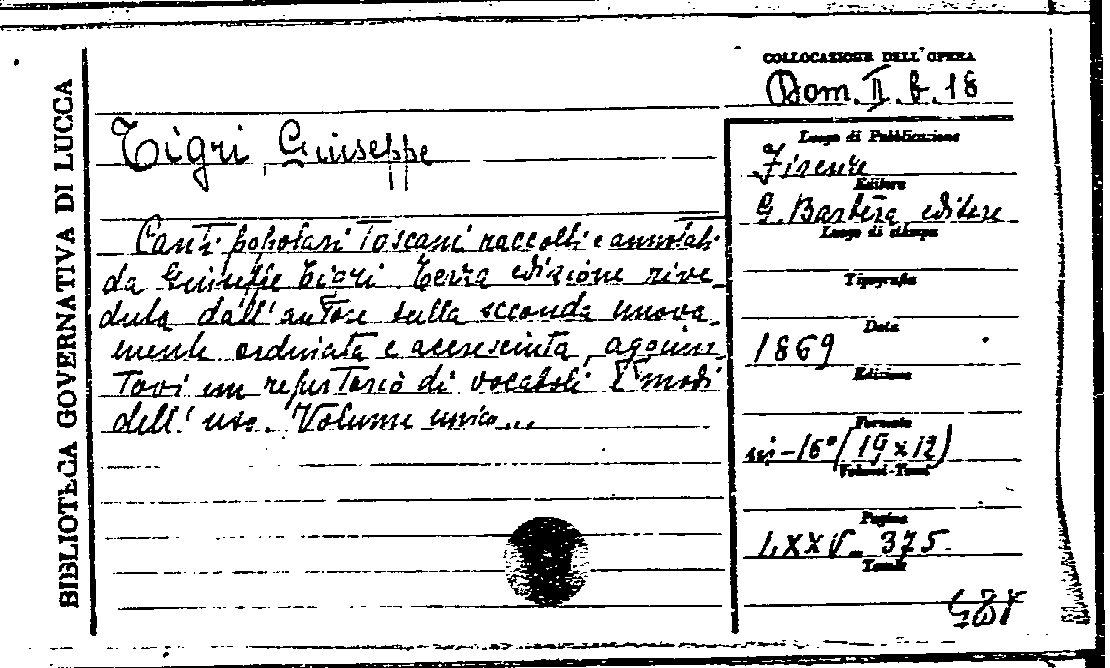 BIBLIOTECA GOVERNATIVA DI LUCCA
COLLOCAZIONE DELL'OPERA
Dom. II. b. 18
Tigri, Giuseppe
Canti popolari Toscani raccolti e annotati
da Giuseppe Tigri. Terza edizione rive_
duta dall'autore sulla seconda nuova_
mente ordinata e accresciuta, aggiun_
tovi un repertorio di vocaboli e modi
dell'uso. Volume unico...
Luogo di Pubblicazione
Firenze
Editore
G. Barbèra editore
Luogo di stampa
Tipografia
Data
1869
Edizione
Formato
in-16° (19x12)
Volumi-Tomi
Pagine
LXXV-375.
Tavole